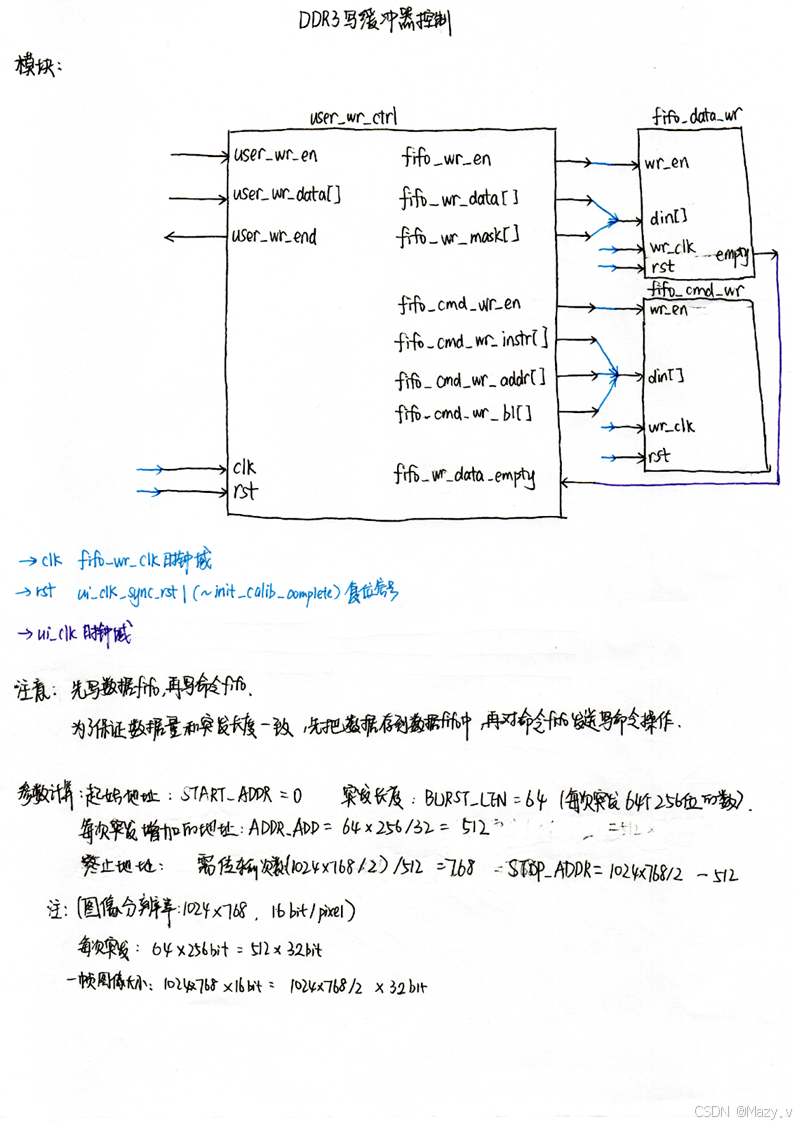 DDR3写缓冲器控制
模块:
user_wr_ctrl
user_wr_en
user_wr_data[]
user_wr_end
clk
rst
fifo_wr_en
fifo_wr_data[]
fifo_wr_mask[]
fifo_cmd_wr_en
fifo_cmd_wr_instr[]
fifo_cmd_wr_addr[]
fifo_cmd_wr_bl[]
fifo_wr_data_empty
fifo_data_wr
wr_en
din[]
wr_clk
empty
rst
fifo_cmd_wr
wr_en
din[]
wr_clk
rst
→clk fifo_wr_clk时钟域
→rst ui_clk_sync_rst|(~init_calib_complete)复位信号
→ui_clk时钟域
注意: 先写数据fifo,再写命令fifo.
为了保证数据量和突发长度一致,先把数据存到数据fifo中,再对命令fifo发送写命令操作.
参数计算:起始地址:START_ADDR=0 突发长度:BURST_LEN=64 (每次突发64个256位的数).
每次突发增加的地址:ADDR_ADD=64×256/32=512 =512
终止地址: 需传输次数(1024×768/2)/512=768 STOP_ADDR=1024×768/2-512
注:(图像分辨率:1024×768, 16bit/pixel)
每次突发: 64×256bit=512×32bit
一帧图像大小: 1024×768×16bit= 1024×768/2 ×32bit
CSDN @Mazy.v